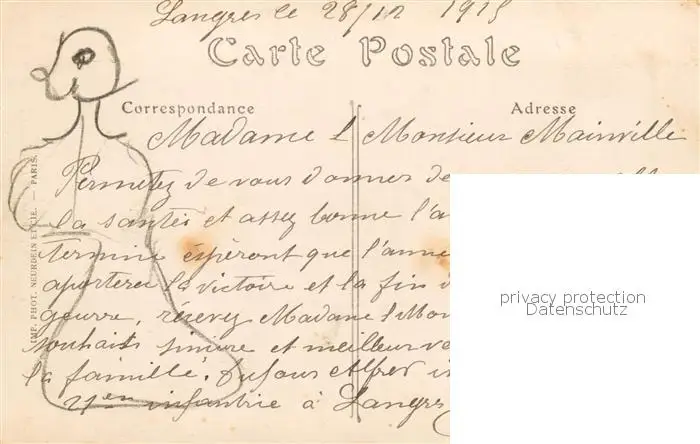 Langres le 28/12 1915
Carte Postale
Correspondance
Adresse
Madame & Monsieur Mainville
Permitez de vous donner de
la santés et assez bonne l'a
termine éspèront que l'anne
aporterer la victoire et la fin
geurre, récevez Madame & Mon
souhaits sinsère et meilleur
la famille. Alfred
21em infantrie à Langres
IMP. PHOT. NEURDEIN ET CIE. — PARIS.
privacy protection
Datenschutz